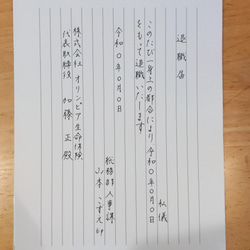 退職届
私儀
このたび一身上の都合により 令和〇年〇月〇日
をもって退職いたします
令和〇年〇月〇日
総務部人事課
山本こずえ 印
株式会社 オリンピア生命保険
代表取締役 加藤 正 殿